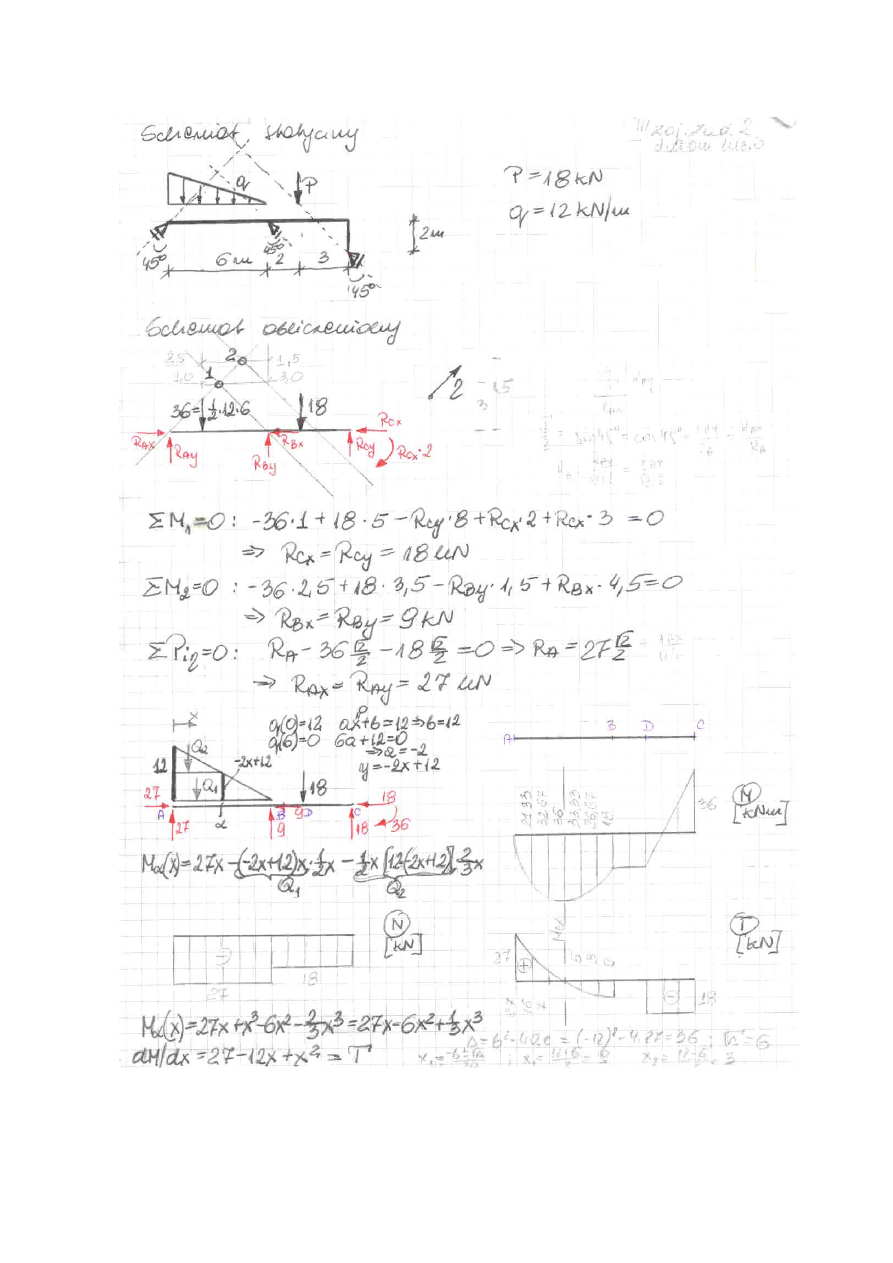 Schemat statyczny
III zaj. zad. 2.
P = 18 kN
q = 12 kN/m
q
P
2m
45° 6m 45° 2 3
45°
Schemat obliczeniowy
2,5 2 1,5
1,0 1 3,0
36=½·12·6 18
RAx RAy RBx RBy RCx RCy RCx·2
η
ΣM₁=0 : -36·1 + 18·5 - RCy·8 + RCx·2 + RCx·3 = 0
=> RCx = RCy = 18 kN
ΣM₂=0 : -36·2,5 + 18·3,5 - RBy·1,5 + RBx·4,5 = 0
=> RBx = RBy = 9 kN
ΣPiη=0 : RA - 36 √2/2 - 18 √2/2 = 0 => RA = 27 √2/2
=> RAx = RAy = 27 kN
x
q(0)=12 ax+b=12=>b=12
q(6)=0 6a+12=0
=>a=-2
y=-2x+12
Q2 12 Q1 -2x+12 18
27 A 27 α B 9 9 D C 18 18 36
A B D C
M [kNm]
21,33 32,67 36 33,33 26,67 18
36
Mα(x)=27x-(-2x+12)x·½x - ½x[12-(-2x+12)]·⅔x
Q1 Q2
N [kN]
- 27 18
T [kN]
Mex
27 + 27 16 7 - 18
Mα(x)=27x+x³-6x²-⅔x³=27x-6x²+⅓x³
Δ=b²-4ac=(-12)²-4·27=36 ; √Δ=6
dM/dx=27-12x+x²=T